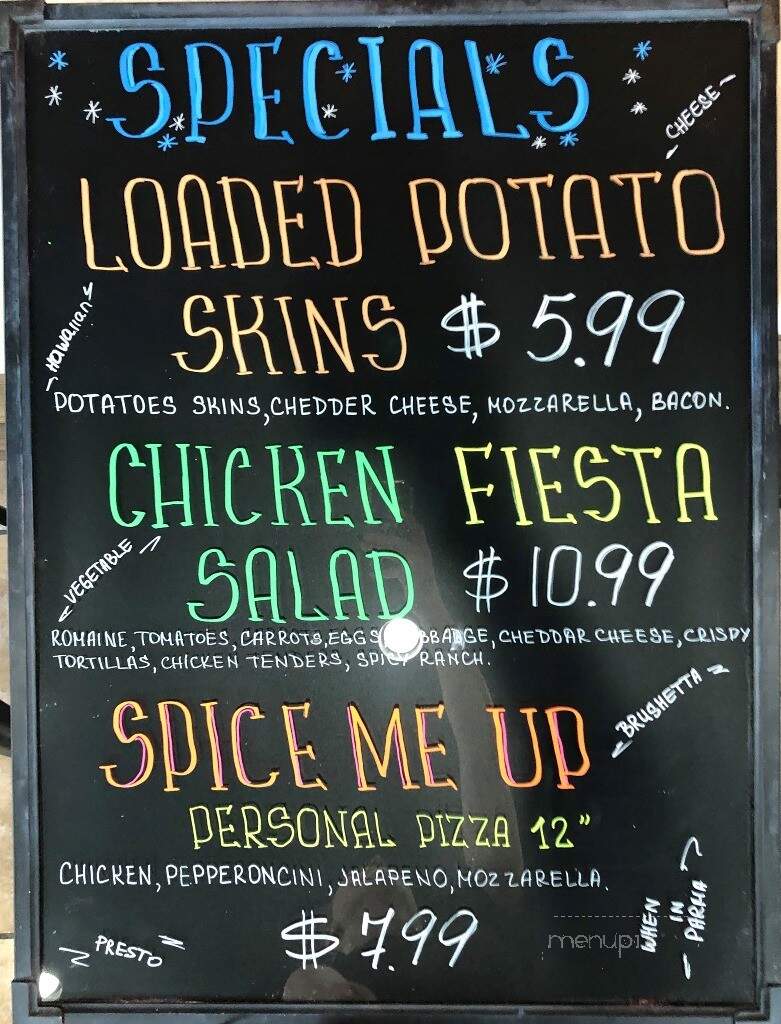 SPECIALS
CHEESE
LOADED POTATO
SKINS $ 5.99
Hawaiian
POTATOES SKINS, CHEDDER CHEESE, MOZZARELLA, BACON.
CHICKEN FIESTA
SALAD $ 10.99
VEGETABLE
ROMAINE, TOMATOES, CARROTS, EGGS, CHEDDAR CHEESE, CRISPY
TORTILLAS, CHICKEN TENDERS, SPICY RANCH.
BRUSHETTA
SPICE ME UP
PERSONAL PIZZA 12"
CHICKEN, PEPPERONCINI, JALAPENO, MOZZARELLA.
$ 7.99
PRESTO
WHEN
IN
PARMA